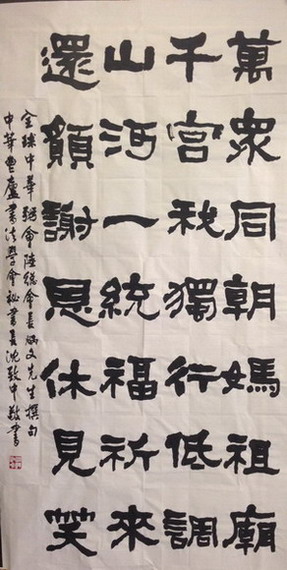 萬眾同朝媽祖廟
千宮我獨行低調
山河一統福祈來
還願謝恩休見笑
全球中華粥會陸總會長炳文先生撰句
中華廬書法學會秘書長沈致中敬書